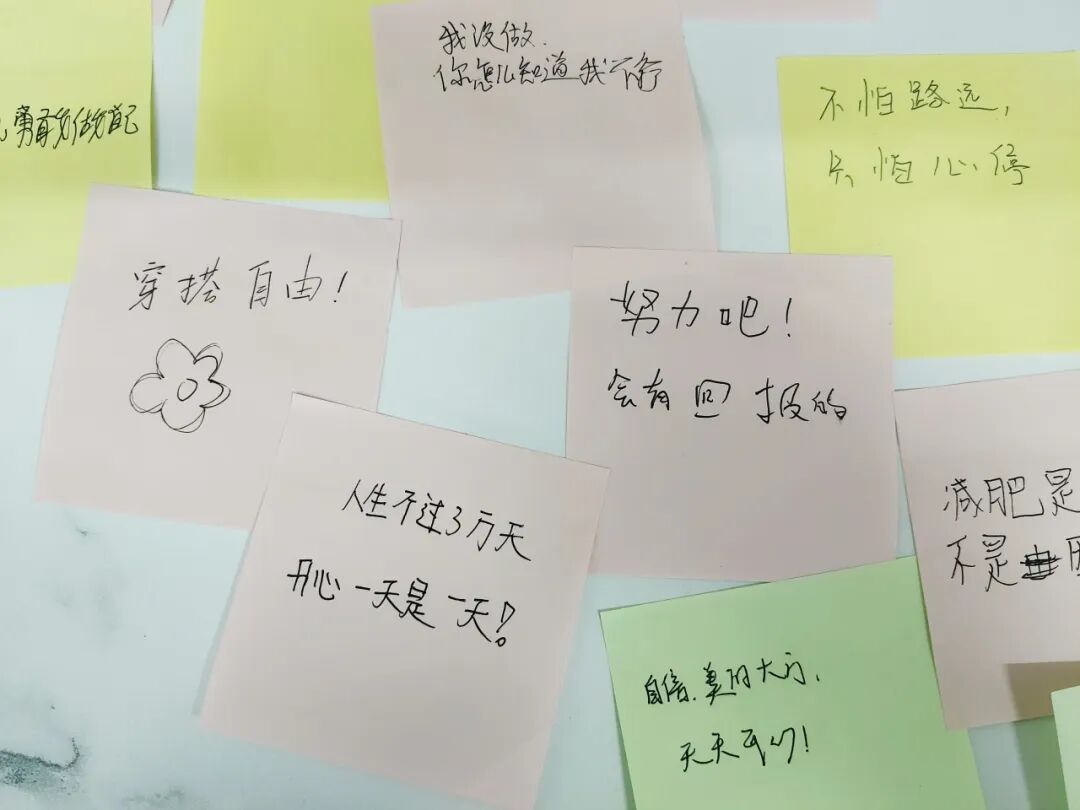 勇敢做自己
我没做.
你怎么知道我不行
不怕路远,
只怕心停
穿搭自由!
努力吧!
会有回报的
人生不过3万天
开心一天是一天!
减肥是
不是
自信.美丽大方,
天天